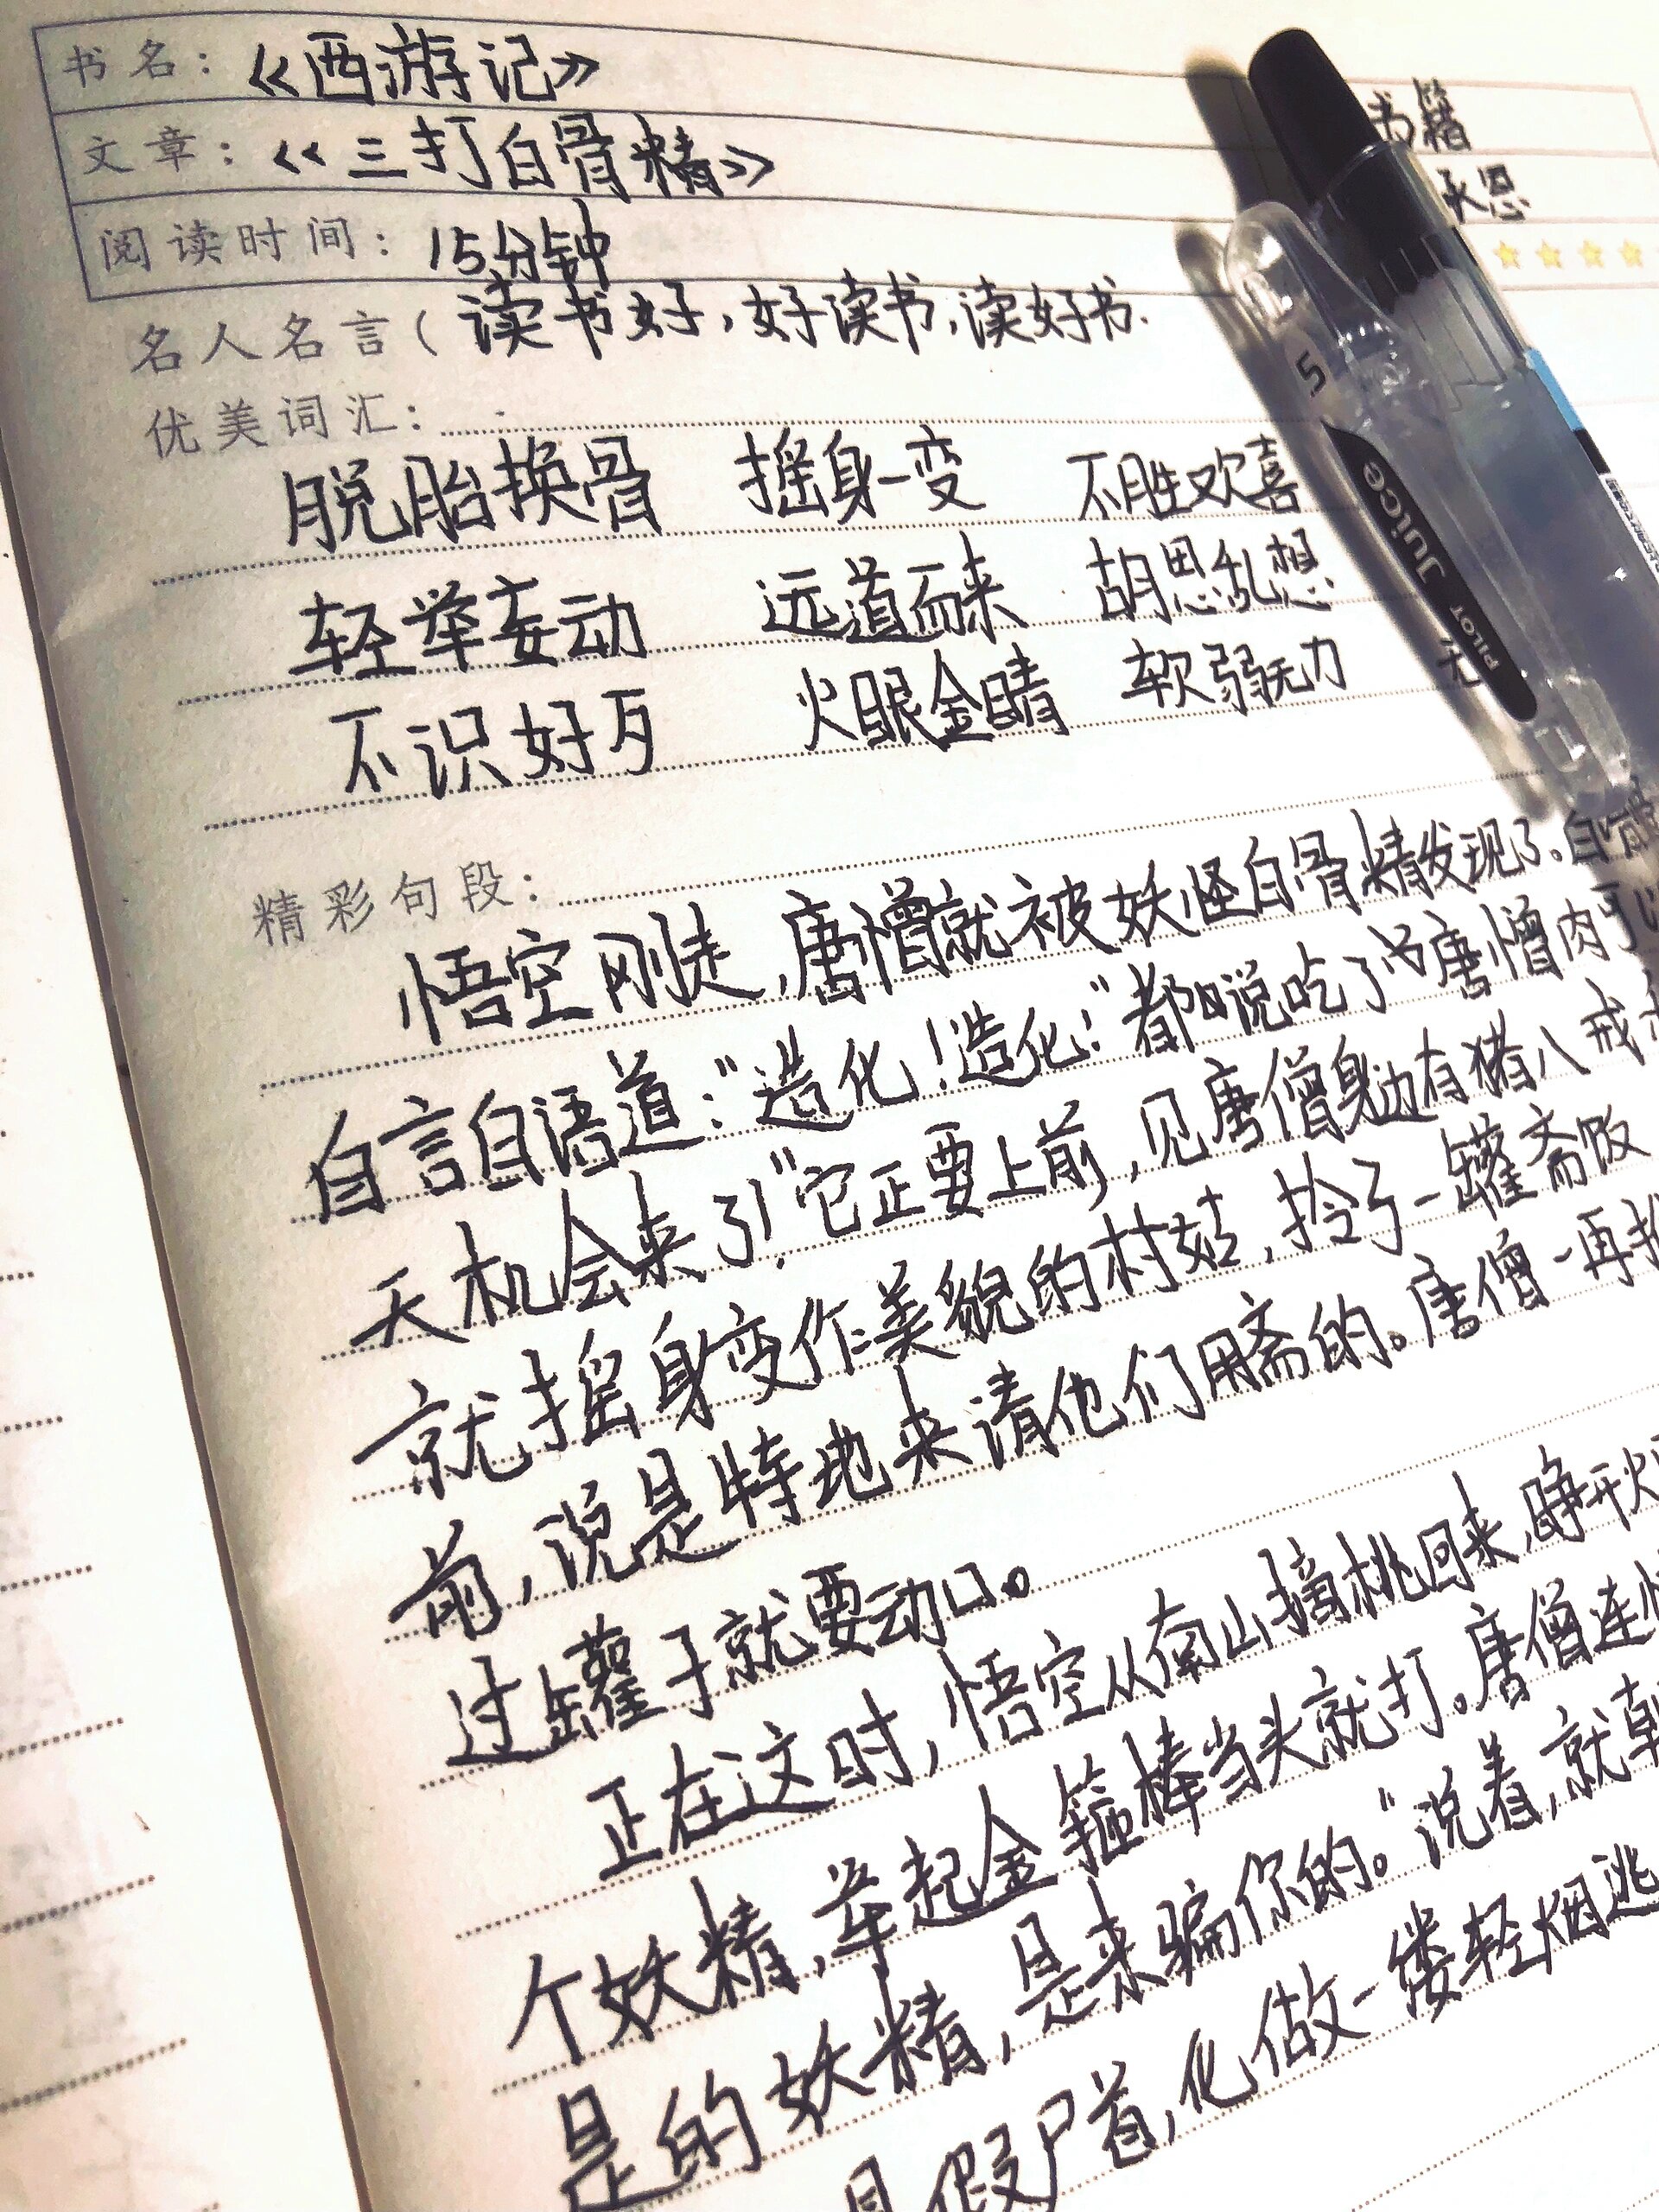 书名：《西游记》
书籍
文章：《三打白骨精》
承恩
阅读时间：15分钟
名人名言（读书好，好读书，读好书.
优美词汇：
脱胎换骨 摇身一变 不胜欢喜
轻举妄动 远道而来 胡思乱想
不识好歹 火眼金睛 软弱无力 无
精彩句段：
悟空刚走，唐僧就被妖怪白骨精发现了。白骨
自言自语道：“造化！造化！”都说吃了唐僧肉可以
天机会来了！”它正要上前，见唐僧身边有猪八戒
就摇身变作美貌的村姑，拎了一罐斋饭
前，说是特地来请他们用斋的。唐僧一再
过罐子就要动口。
正在这时，悟空从南山摘桃回来，睁开火
个妖精，举起金箍棒当头就打。唐僧连
是的妖精，是来骗你的。”说着，就朝
假尸首，化做一缕轻烟逃
5
Juice
PILOT